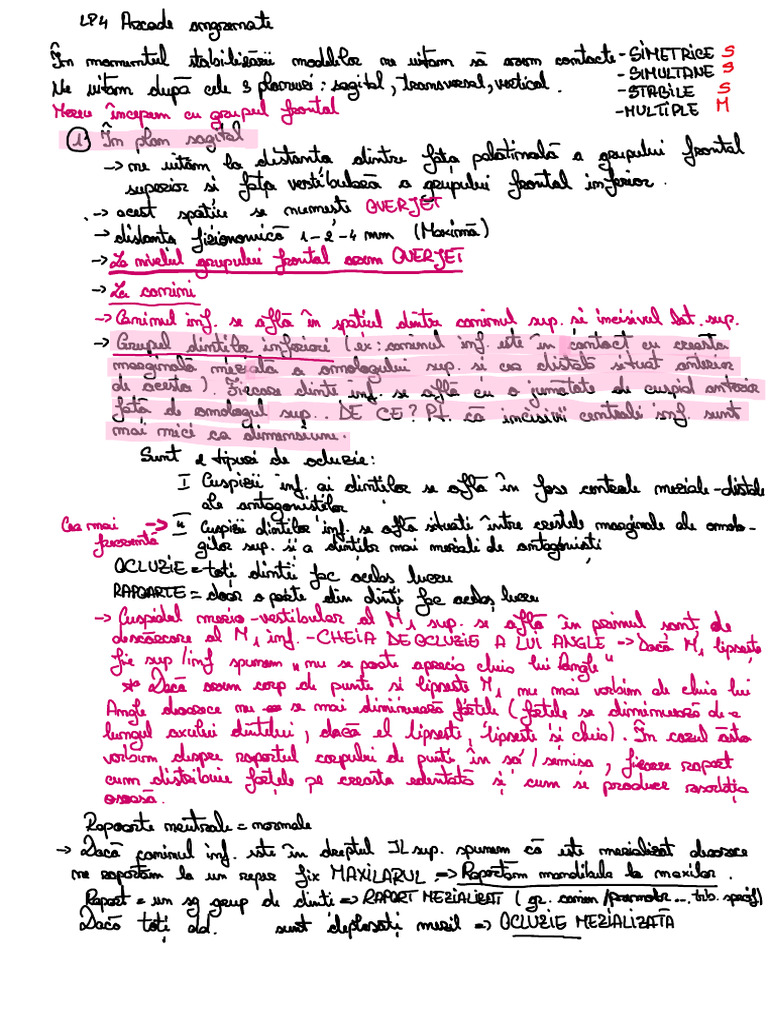 LP4 Arcade angrenate
În momentul stabilizării modelelor ne uităm să avem contacte -SIMETRICE S
-SIMULTANE S
Ne uităm după cele 3 planuri: sagital, transversal, vertical. -STABILE S
-MULTIPLE M
Mereu începem cu grupul frontal
① În plan sagital
→ ne uităm la distanta dintre fața palatinală a grupului frontal
superior si fața vestibulară a grupului frontal inferior.
→ acest spatiu se numeste OVERJET
→ distanta fizionomică 1-2-4 mm (Maximă)
→ La nivelul grupului frontal avem OVERJET
→ La canini
→ Caninul inf. se află în spațiul dintre caninul sup. si incisivul lat. sup.
→ Grupul dintilor inferiori (ex: caninul inf. este în contact cu creasta
marginală mezială a omologului sup. si cea distală situat anterior
de acesta). Fiecare dinte inf. se află cu o jumătate de cuspid anterior
față de omologul sup... DE CE? Pt. că incisivii centrali inf sunt
mai mici ca dimensiune.
Sunt 2 tipuri de ocluzie:
I Cuspizii inf. ai dintilor se află în fose centrale meziale-distale
ale antagonistilor
Cea mai frecventă → II Cuspizi dintilor inf. se află situati între crestele marginale ale omolo-
gilor sup. si a dintilor mai meziali de antagonisti
OCLUZIE = toti dintii fac acelas lucru
RAPOARTE = doar o parte din dinti fac acelas lucru
→ Cuspidul mezio-vestibular al M₁ sup. se află în primul sant de
descărcare al M₁ inf. -CHEIA DE OCLUZIE A LUI ANGLE → Dacă M₁ lipseste
fie sup/inf spunem „nu se poate aprecia cheia lui Angle"
* Dacă avem corp de punte si lipseste M₁ nu mai vorbim de cheia lui
Angle deoarece nu se mai diminuează fortele (fortele se diminuează de-a
lungul axului dintelui, dacă el lipseste, lipseste si cheia). În cazul ăsta
vorbim despre raportul corpului de punti în sa/semisa, fiecare raport
cum distribuie fortele pe creasta edentată si cum se produce rezorbtia
osoasă.
Rapoarte neutrale = normale
→ Dacă caninul inf. este în dreptul IL sup. spunem că este mezializat deoarece
ne raportam la un reper fix MAXILARUL → Raportam mandibula la maxilar.
Raport = un sg grup de dinti ⇒ RAPORT MEZIALIZAT (gr. canin/premolar... trb. specif)
Dacă toti dd. sunt deplasati mezial ⇒ OCLUZIE MEZIALIZATĂ